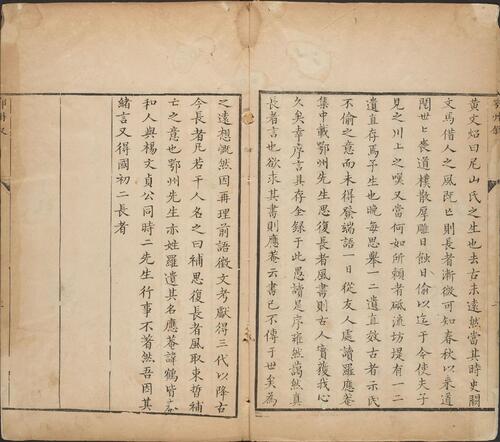 黃文炤曰尼山氏之生也去古未遠然當其時史闕
文馬借人之風既亡則長者漸微可知春秋以來道
閱世世喪道樸散厚雕日蝕日偷以迄于今使夫子
見之川上之嘆又當何如所賴者砥流坊堤有一二
遺直存焉予生也晚每思舉一二遺直效古者示民
不偷之意而未得發端語一日從友人處讀羅應菴
集中載鄂州先生思復長者風書則古人實獲我心
久矣幸序言具存全錄于此愚讀是序雍然藹然真
長者言也欲求其書則應菴云書已不傳于世矣為
之遠想慨然因再理前語徵文考獻得三代以降古
今長者凡若干人名之曰補思復長者風取束晳補
亡之意也鄂州先生亦姓羅遺其名應菴諱鶴皆
和人與楊文貞公同時二先生行事不著然吾因其
緒言又得國初二長者